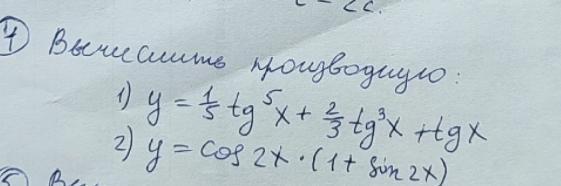 ④ Вычислить производную:
1) y = 1/5 tg⁵x + 2/3 tg³x + tgx
2) y = cos 2x · (1 + sin 2x)